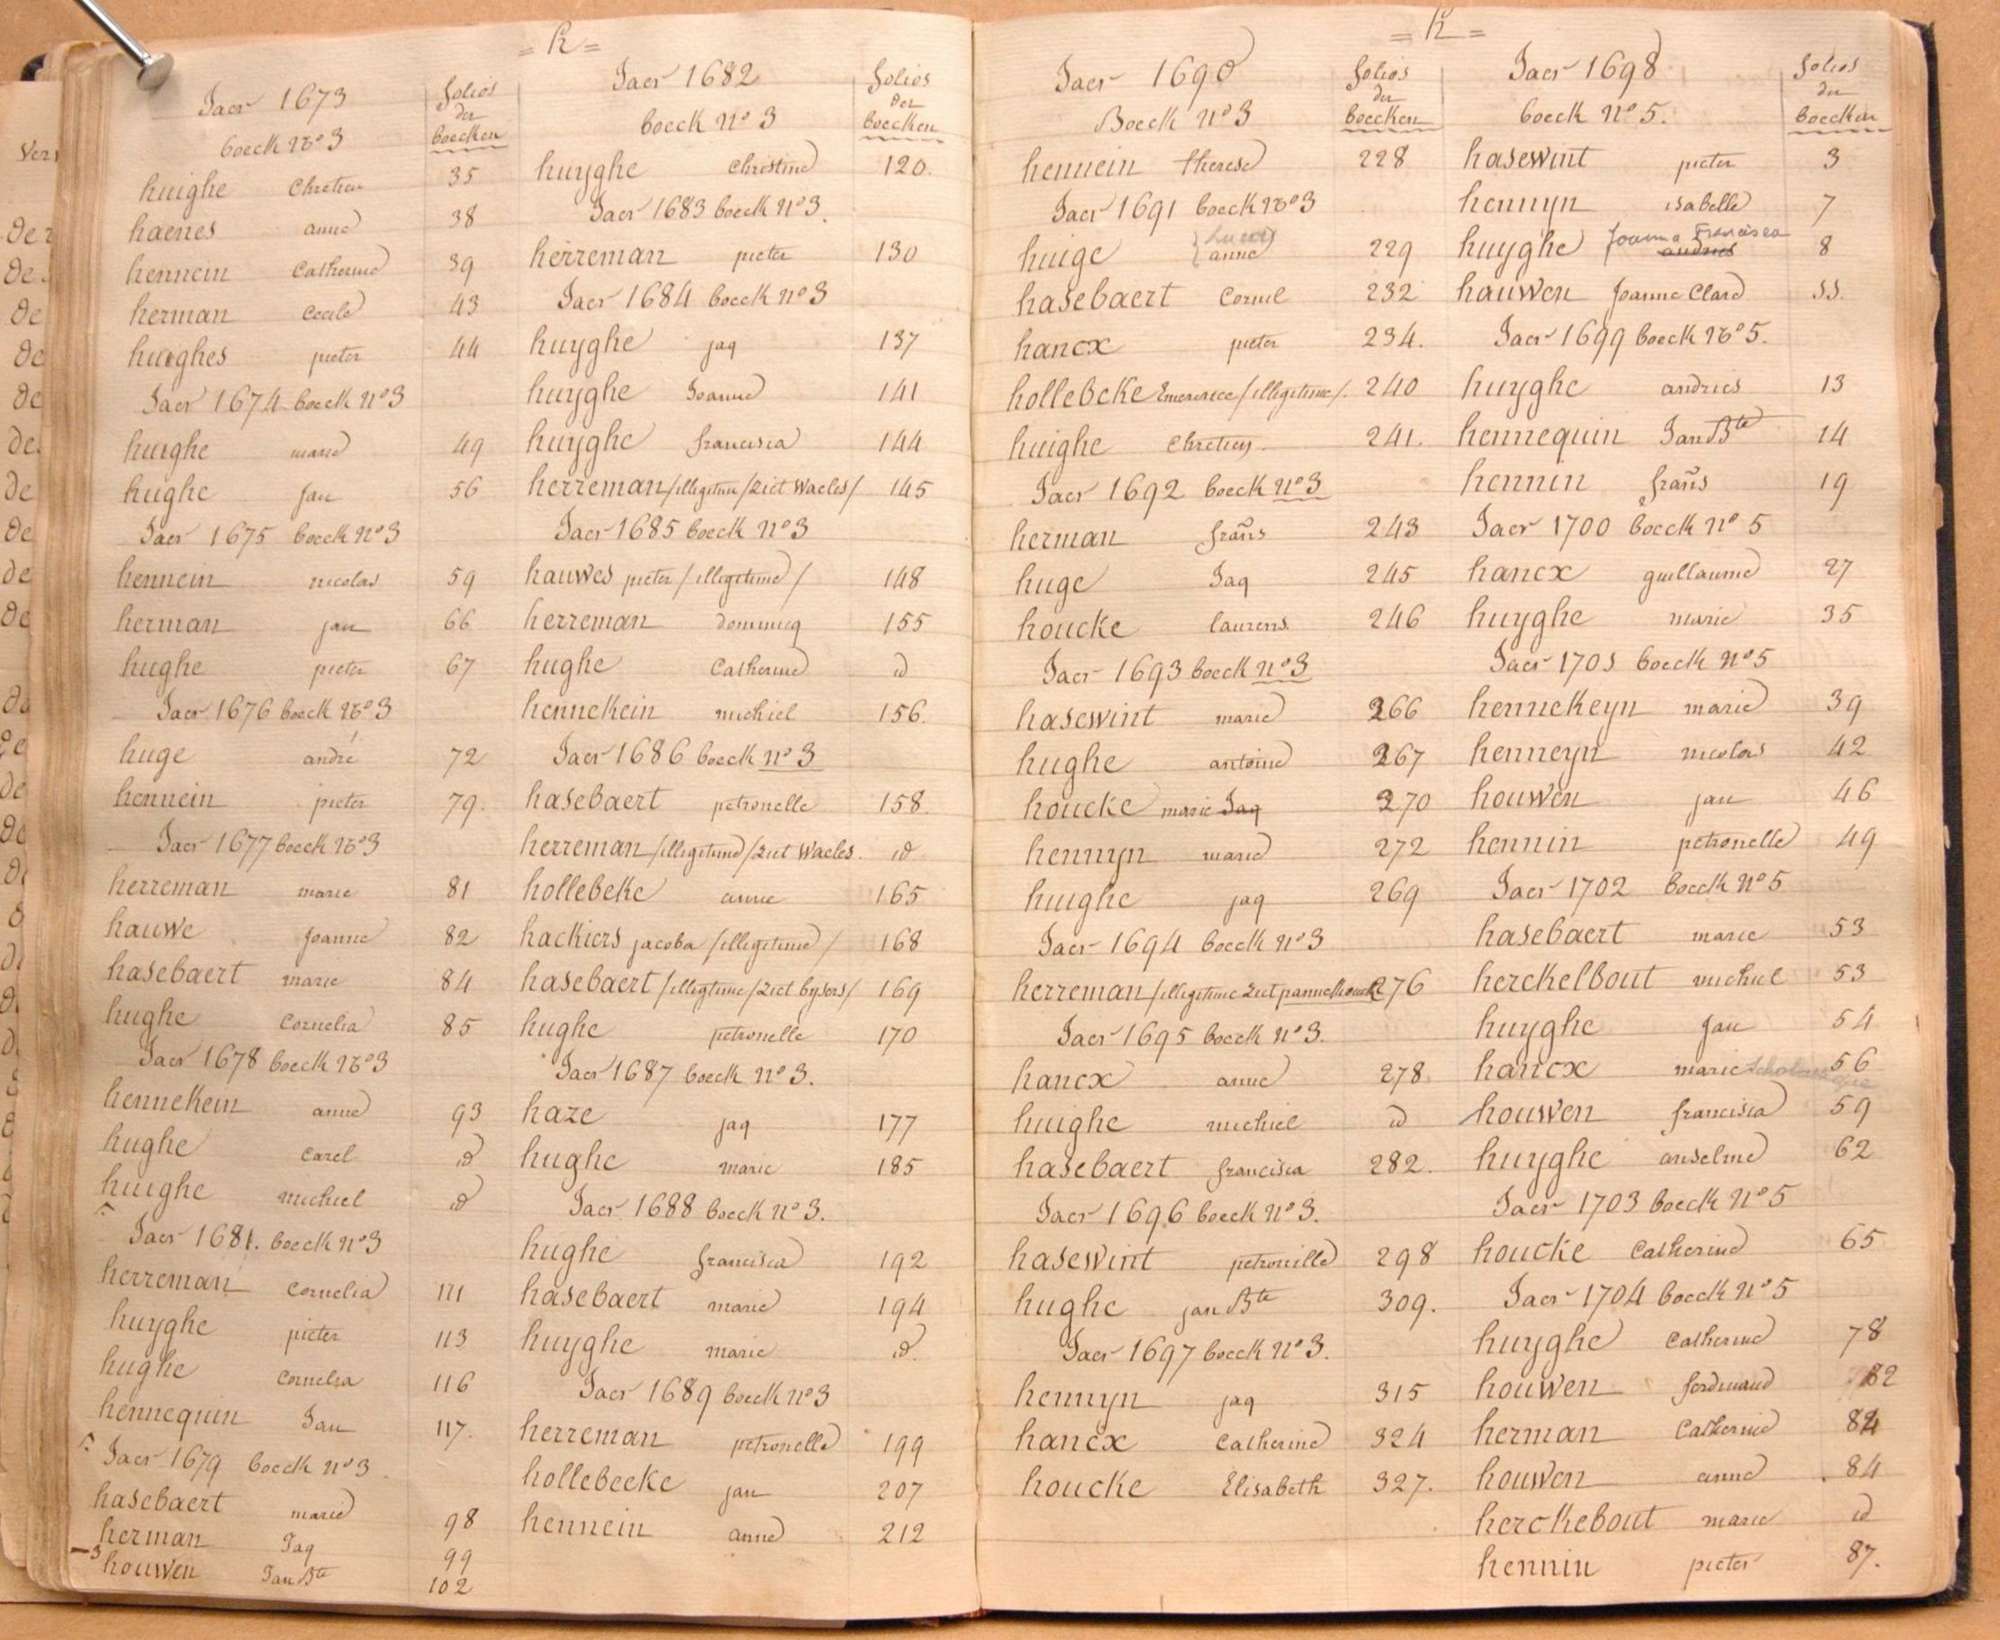 = h =
Jaer 1673
folios
der
boecken
boeck No 3
huighe Chretien 35
haenes anne 38
hennein Catherine 39
herman Cecile 43
hueghes pieter 44
Jaer 1674 boeck No 3
huighe marie 49
hughe Jan 56
Jaer 1675 boeck No 3
hennein nicolas 59
herman jan 66
hughe pieter 67
Jaer 1676 boeck No 3
huge andré 72
hennein pieter 79.
Jaer 1677 boeck No 3
herreman marie 81
hauwe Joanne 82
hasebaert marie 84
hughe Cornelia 85
Jaer 1678 boeck No 3
hennekein anne 93
hughe Carel id
huighe michiel id
Jaer 1681. boeck No 3
herreman Cornelia 111
huyghe pieter 113
hughe Cornelia 116
hennequin Jan 117.
Jaer 1679 boeck No 3
hasebaert marie 98
herman Jaq 99
houwen Jan Bte 102
Jaer 1682
folios
der
boecken
boeck No 3
huyghe Christine 120.
Jaer 1683 boeck No 3.
herreman pieter 130
Jaer 1684 boeck No 3
huyghe jaq 137
huyghe Joanne 141
huyghe francisca 144
herreman /illegitime/ ziet Waeles/ 145
Jaer 1685 boeck No 3
hauwes pieter /illigitime/ 148
herreman dominicq 155
hughe Catherine id
hennekein michiel 156.
Jaer 1686 boeck no 3
hasebaert petronelle 158.
herreman /illegitime/ ziet Waeles. id
hollebeke anne 165
hackiers jacoba /illegitime/ 168
hasebaert /illegitime/ ziet bysers/ 169
hughe petronelle 170
Jaer 1687 boeck No 3.
haze jaq 177
hughe marie 185
Jaer 1688 boeck No 3.
hughe francisca 192
hasebaert marie 194
huyghe marie id.
Jaer 1689 boeck no 3
herreman petronelle 199
hollebeeke jan 207
hennein anne 212
= h =
Jaer 1690
folios
der
boecken
Boeck No 3
hennein therese 228
Jaer 1691 boeck No 3
huige anne 229
hasebaert Cornil 232
hancx pieter 234.
hollebeke Emerence /illegitime/. 240
huighe Chretien. 241.
Jaer 1692 boeck no 3
herman frans 243
huge Jaq 245
houcke laurens. 246
Jaer 1693 boeck no 3
hasewint marie 266
hughe antoine 267
houcke marie Jaq 270
hennyn marie 272
huighe jaq 269
Jaer 1694 boeck No 3
herreman /illegitime ziet pannekoucke 276
Jaer 1695 boeck No 3.
hancx anne 278
huighe michiel id
hasebaert francisca 282.
Jaer 1696 boeck No 3.
hasewint petronille 298
hughe jan Bte 309.
Jaer 1697 boeck No 3.
hennyn jaq 315
hancx Catherine 324
houcke Elisabeth 327.
Jaer 1698
folios
der
boecken
boeck No 5.
hasewint pieter 3
hennyn isabelle 7
huyghe Joanna Francisca andries 8
hauwen Joanne Clare
Jaer 1699 boeck No 5.
huyghe andries 13
hennequin Jan Bte 14
hennin frans 19
Jaer 1700 boeck No 5
hancx guillaume 27
huyghe marie 35
Jaer 1701 boeck No 5
hennekeyn marie 39
henneyn nicolas 42
houwen jan 46
hennin petronelle 49
Jaer 1702 boeck No 5
hasebaert marie 53
herckelbout michiel 53
huyghe Jan 54
hancx marie 56
houwen francisca 59
huyghe anselme 62
Jaer 1703 boeck No 5
houcke Catherine 65
Jaer 1704 boeck No 5
huyghe Catherine 78
houwen ferdinand 82
herman Catherine 84
houwen anne 84
herckebout marie id
hennin pieter 87.